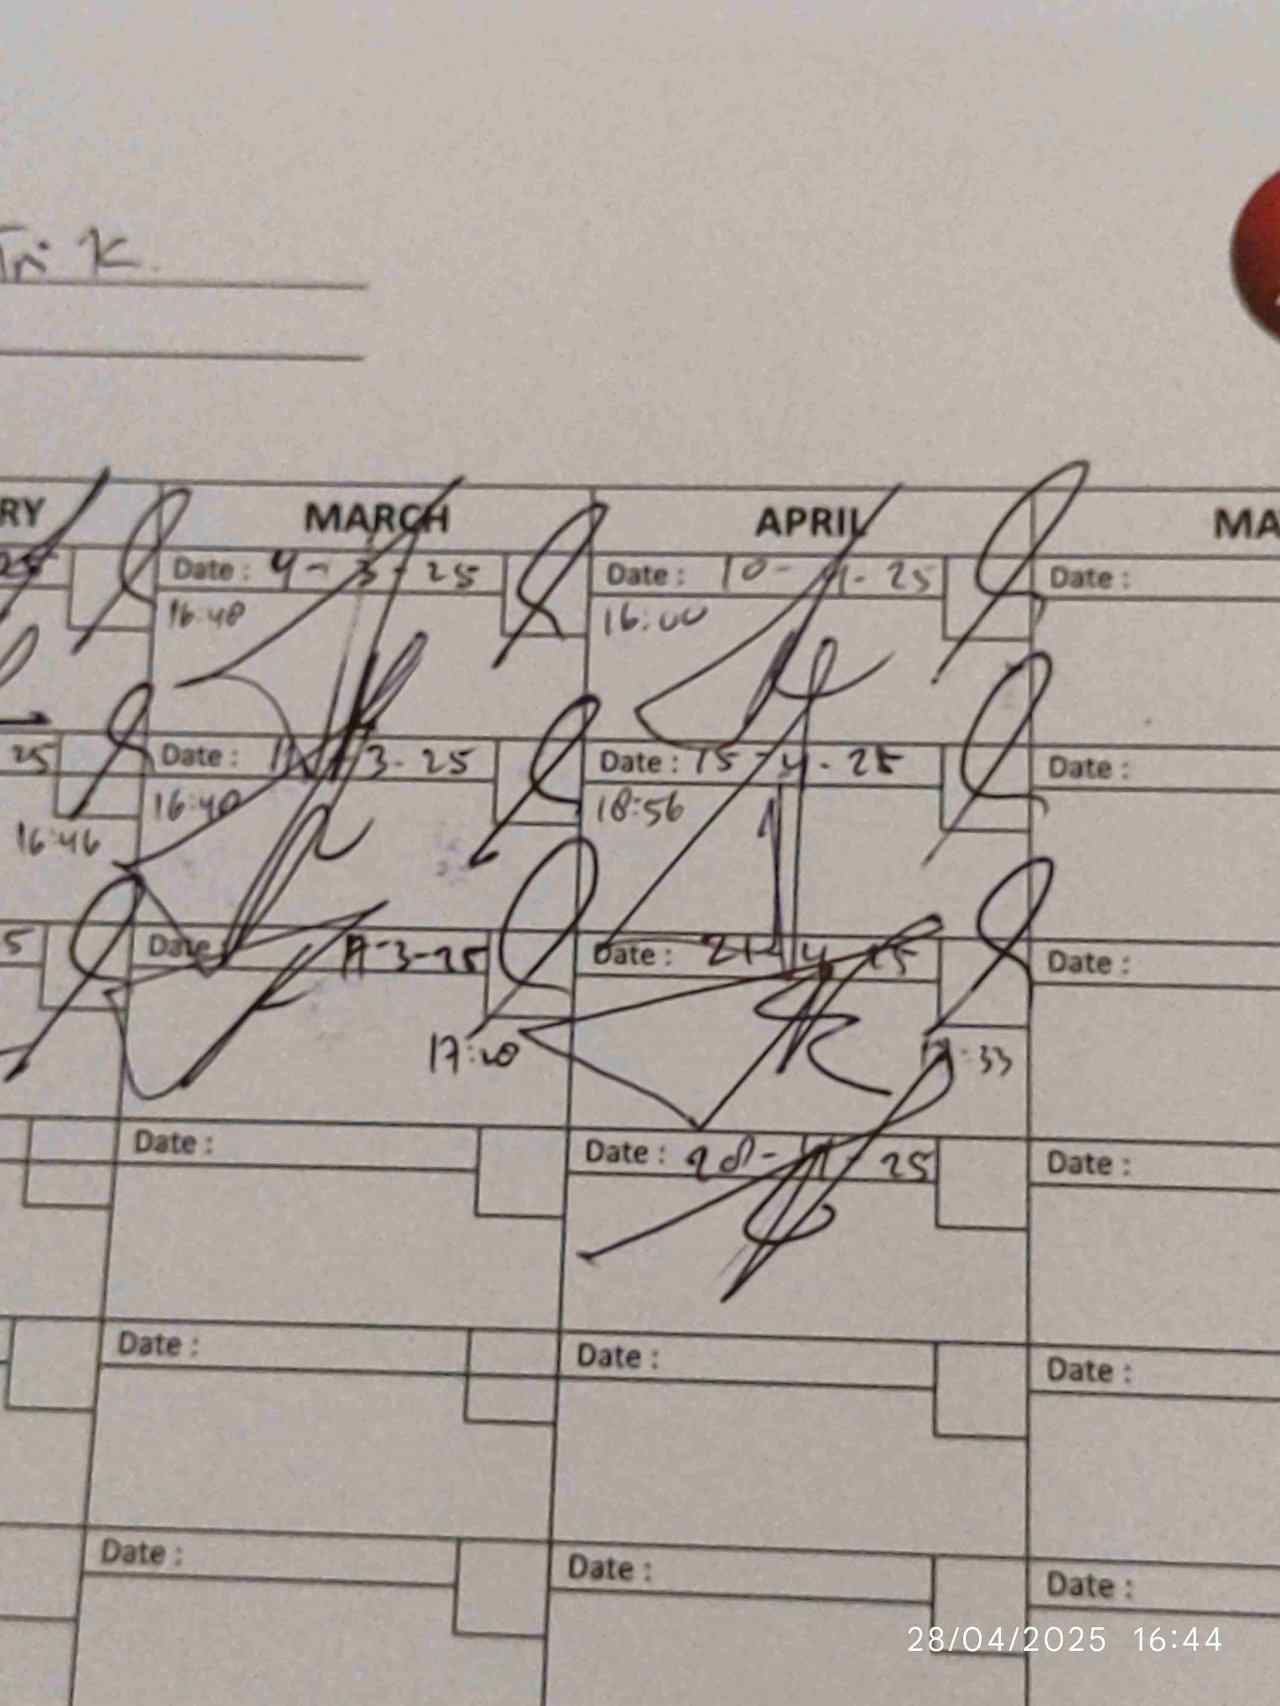 Tri K.
RY MARCH APRIL MA
25 Date : 4-3-25 Date : 10-4-25 Date :
16:48 16:00
25 Date : 11-3-25 Date : 15-4-25 Date :
16:46 16:40 18:56
5 Date : -3-25 Date : 21-4-25 Date :
17:20 :33
Date : Date : 28-4-25 Date :
Date : Date : Date :
Date : Date : Date :
28/04/2025 16:44